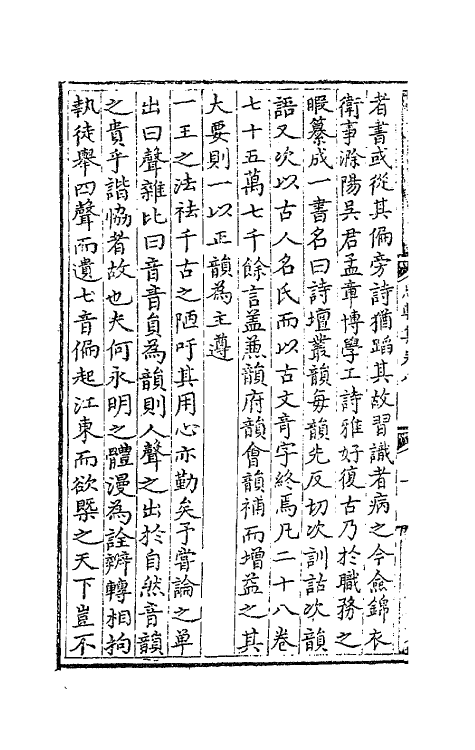 者書或從其偏旁詩猶蹈其故習識者病之今僉錦衣
衛事滁陽吳君孟章博學工詩雅好復古乃於職務之
暇纂成一書名曰詩壇叢韻每韻先反切次訓詁次韻
語又次以古人名氏而以古文竒字終焉凡二十八卷
七十五萬七千餘言盖兼韻府韻會韻補而增益之其
大要則一以正韻為主遵
一王之法祛千古之陋吁其用心亦勤矣予嘗論之单
出曰聲雜比曰音音員為韻則人聲之出於自然音韻
之貴乎諧恊者故也夫何永明之體漫為詮辨轉相拘
執徒舉四聲而遺七音偏起江東而欲槩之天下豈不